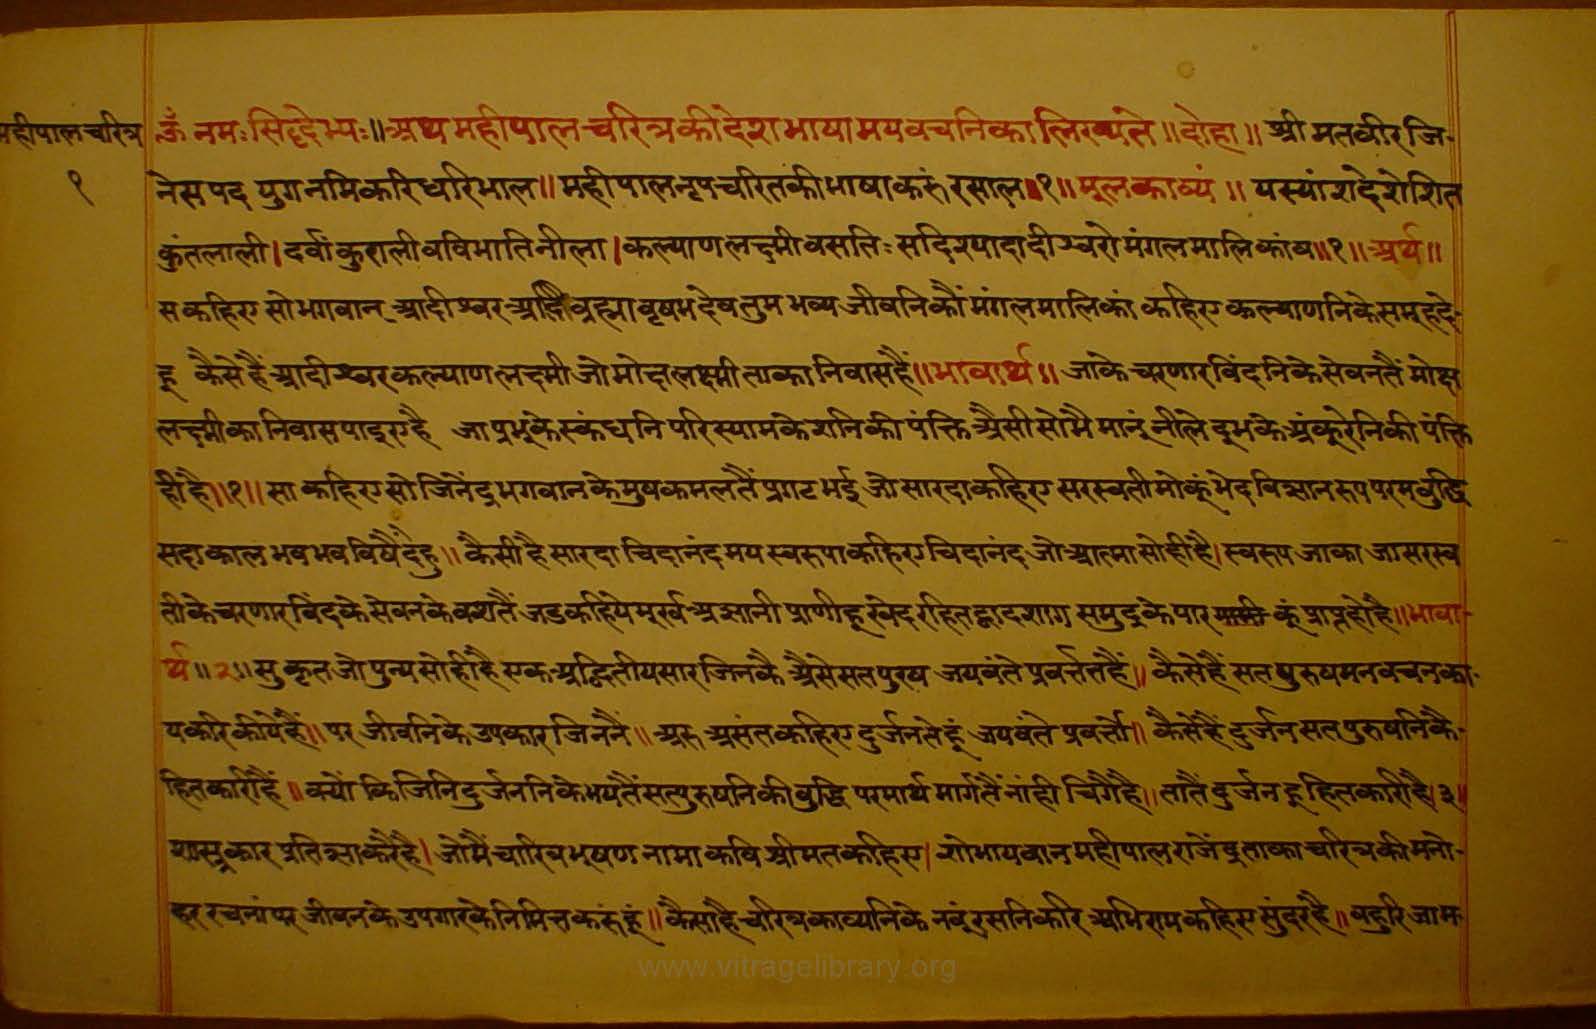 महीपालचरित्र
१
ॐ नमः सिद्धेभ्यः॥ अथ महीपालचरित्रकी देशभाषामय वचनिका लिख्यते॥ दोहा॥ श्रीमतवीरजि-
नेसपद युगनमिकरि धरिभाल॥ महीपालनृपचरितकी भाषा करुं रसाल॥१॥ मूलकाव्यं॥ यस्यांशदेशेशित
कुंतलाली। दर्वांकुरालीवविभातिनीला। कल्याणलक्ष्मीवसतिः सदिश्यादादीश्वरो मंगलमालिकांव॥१॥ अर्थ॥
स कहिए सो भगवान् आदीश्वर आदि ब्रह्मा वृषभदेव तुम भव्य जीवनिकौं मंगलमालिकां कहिए कल्याणनिके समूह दे-
हू कैसे हैं आदीश्वर कल्याणलक्ष्मी जो मोक्षलक्ष्मी ताका निवास हैं॥ भावार्थ॥ जाके चरणारविंदनिके सेवनतैं मोक्ष
लक्ष्मीका निवास पाइए है जा प्रभूके स्कंधनि परि स्याम केशनिकी पंक्ति अैसी सोभै मानूं नीले द्रुमके अंकूरेनिकी पंक्ति
ही है॥१॥ सा कहिए सो जिनेंद्र भगवानके मुषकमलतैं प्रगट भई जो सारदा कहिए सरस्वती मोकूं भेदविज्ञानरुप परमबुद्धि
सदाकाल भवभवविषैं देहु॥ कैसी है सारदा चिदानंदमयस्वरुपा कहिए चिदानंद जो आत्मा सोही है। स्वरुप जाका जा सरस्व
तीके चरणारविंदके सेवनके वशतैं जड कहिये मूर्ख अज्ञानी प्राणीहू खेदरहित द्वादशाग समुद्रके पार कूं प्राप्त होहै॥ भावा-
र्थ॥२॥ सुकृत जो पुन्य सोही है एक अद्वितीय सार जिनकै अैसे सतपुरुष जयवंते प्रवर्त्तत हैं॥ कैसे हैं सतपुरुष मनवचनका-
यकरि कीये हैं॥ परजीवनिके उपकार जिननैं॥ अरु असंत कहिए दुर्जन ते हूं जयवंते प्रवर्त्तो॥ कैसे हैं दुर्जन सतपुरुषनिकै-
हितकारी हैं॥ क्यों कि जिनि दुर्जननिके भयतैं सत्पुरुषनिकी बुद्धि परमार्थमार्गतैं नांही चिगै है॥ तातैं दुर्जनहू हितकारी है।३॥
शास्त्रकार प्रतिज्ञा करै है। जो मैं चारित्रभूषण नामा कवि श्रीमत कहिए। शोभायवान महीपाल राजेंद्र ताका चरित्रकी मनो-
हर रचनां पर जीवनके उपगारके निमित्त करुं हूं॥ कैसा है चरित्र काव्यनिके नवूं रसनिकरि अभिराम कहिए सुंदर है॥ बहुरि जाम-
www.vitragelibrary.org